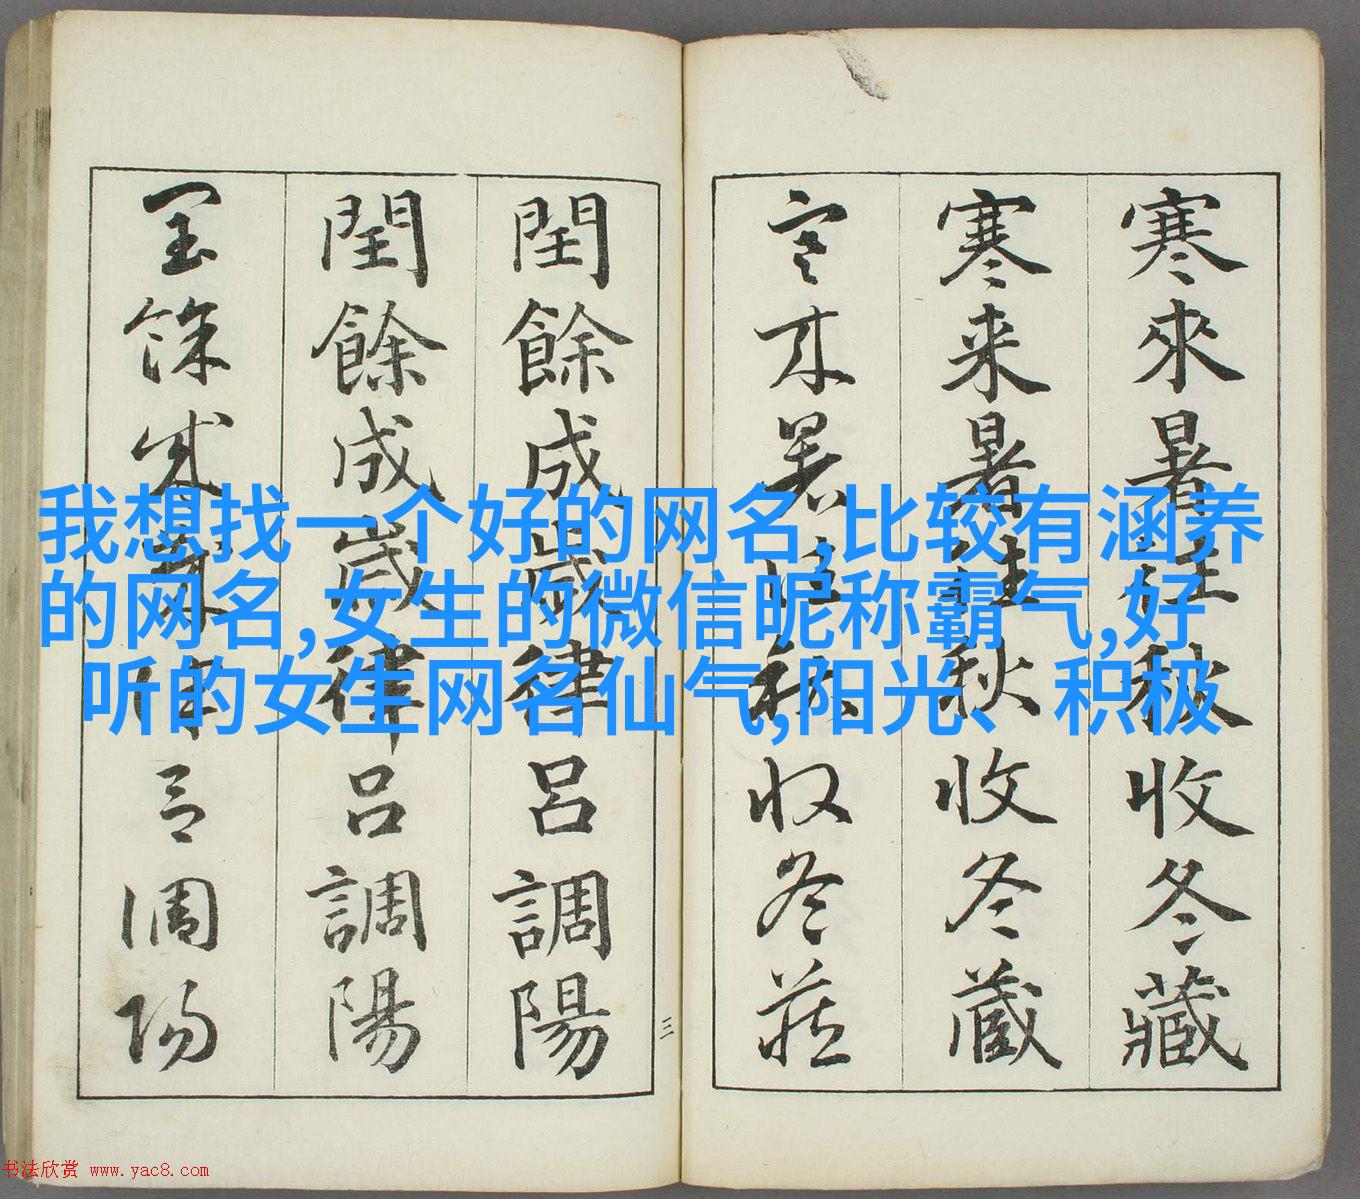 寒來暑往秋收冬藏
寒来暑往秋收冬蔵
寒来暑往秋收冬藏
三
閏餘成歲律呂調陽
閏餘成歲律呂調陽
閏餘成歲律呂調陽
我想找一个好的网名,比较有涵养
的网名,女生的微信昵称霸气,好
听的女生网名仙气,阳光、积极
书法欣赏 www.yac8.com